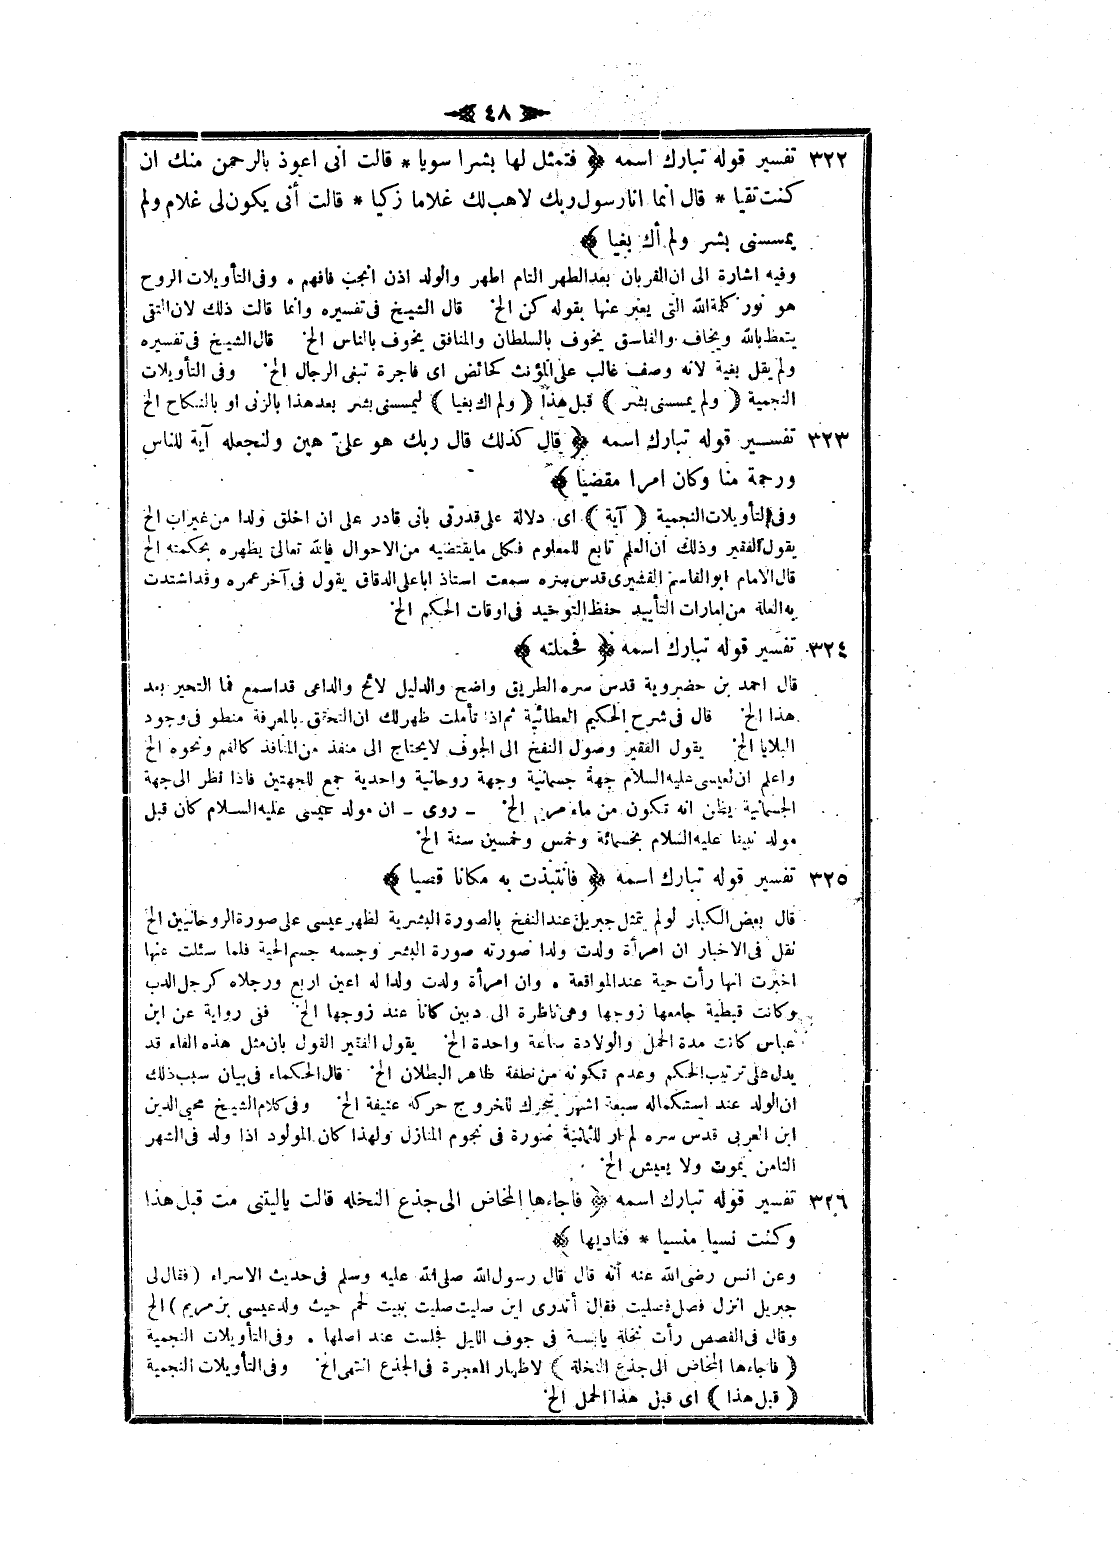 ٤٨
٣٢٢ تفسير قوله تبارك اسمه ﴿ فتمثل لها بشرا سويا * قالت انى اعوذ بالرحمن منك ان
كنت تقيا * قال انما انا رسول ربك لاهب لك غلاما زكيا * قالت أنى يكون لى غلام ولم
يمسسنى بشر ولم أك بغيا ﴾
وفيه اشارة الى ان القربان بعد الطهر التام اطهر والولد اذن انجب فافهم . وفى التأويلات الروح
هو نور كلمة الله التى يعبر عنها بقوله كن الخ قال الشيخ فى تفسيره وانما قالت ذلك لان التقى
يتعظ بالله ويخاف والفاسق يخوف بالسلطان والمنافق يخوف بالناس الخ قال الشيخ فى تفسيره
ولم يقل بغية لانه وصف غالب على المؤنث كحائض اى فاجرة تبغى الرجال الخ وفى التأويلات
النجمية ( ولم يمسسنى بشر ) قبل هذا ( ولم اك بغيا ) ليمسسنى بشر بعد هذا بالزنى او بالنكاح الخ
٣٢٣ تفسير قوله تبارك اسمه ﴿ قال كذلك قال ربك هو علىّ هين ولنجعله آية للناس
ورحمة منا وكان امرا مقضيا ﴾
وفى التأويلات النجمية ( آية ) اى دلالة على قدرتى بانى قادر على ان اخلق ولدا من غير اب الخ
يقول الفقير وذلك ان العلم تابع للمعلوم فكل ما يقتضيه من الاحوال فالله تعالى يظهره بحكمته الخ
قال الامام ابو القاسم القشيرى قدس سره سمعت استاذ ابا على الدقاق يقول فى آخر عمره وقد اشتدت
به العلة من امارات التأييد حفظ التوحيد فى اوقات الحكم الخ
٣٢٤ تفسير قوله تبارك اسمه ﴿ فحملته ﴾
قال احمد بن حضروية قدس سره الطريق واضح والدليل لائح والداعى قد اسمع فما التحير بعد
هذا الخ قال فى شرح الحكم العطائية ثم اذا تأملت ظهر لك ان التحقق بالمعرفة منطو فى وجود
البلايا الخ يقول الفقير وصول النفخ الى الجوف لا يحتاج الى منفذ من المنافذ كالفم ونحوه الخ
واعلم ان لعيسى عليه السلام جهة جسمانية وجهة روحانية واحدية جمع للجهتين فاذا نظر الى جهة
الجسمانية يظن انه تكون من ماء مريم الخ ـ روى ـ ان مولد عيسى عليه السلام كان قبل
مولد نبينا عليه السلام بخسمائة وخمس وخمسين سنة الخ
٣٢٥ تفسير قوله تبارك اسمه ﴿ فانتبذت به مكانا قصيا ﴾
قال بعض الكبار لو لم يتمثل جبريل عند النفخ بالصورة البشرية لظهر عيسى على صورة الروحانيين الخ
نقل فى الاخبار ان امرأة ولدت ولدا صورته صورة البشر وجسمه جسم الحية فلما سئلت عنها
اخبرت انها رأت حية عند المواقعة . وان امرأة ولدت ولدا له اعين اربع ورجلاه كرجل الدب
وكانت قبطية جامعها زوجها وهى ناظرة الى دبين كانا عند زوجها الخ ففى رواية عن ابن
عباس كانت مدة الحمل والولادة ساعة واحدة الخ يقول الفقير القول بان مثل هذه الفاء قد
يدل على ترتيب الحكم وعدم تكونه من نطفة ظاهر البطلان الخ قال الحكماء فى بيان سبب ذلك
ان الولد عند استكماله سبعة اشهر يتحرك للخروج حركة عنيفة الخ وفى كلام الشيخ محيى الدين
ابن العربى قدس سره لم ار للثمانية صورة فى نجوم المنازل ولهذا كان المولود اذا ولد فى الشهر
الثامن يموت ولا يعيش الخ
٣٢٦ تفسير قوله تبارك اسمه ﴿ فاجاءها المخاض الى جذع النخله قالت ياليتنى مت قبل هذا
وكنت نسيا منسيا * فناديها ﴾
وعن انس رضى الله عنه أنه قال قال رسول الله صلى الله عليه وسلم فى حديث الاسراء ( فقال لى
جبريل انزل فصل فصليت فقال أتدرى اين صليت صليت ببيت لحم حيث ولد عيسى بن مريم ) الخ
وقال فى القصص رأت نخلة يابسة فى جوف الليل فجلست عند اصلها . وفى التأويلات النجمية
( فاجاءها المخاض الى جذع النخلة ) لاظهار المعجرة فى الجذع انتهى الخ وفى التأويلات النجمية
( قبل هذا ) اى قبل هذا الحمل الخ